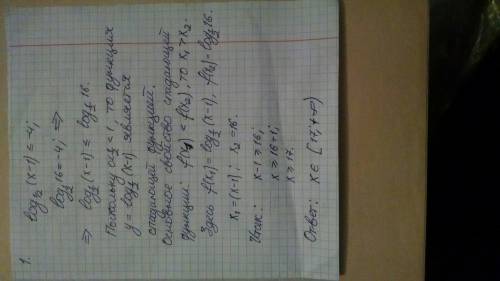 1.
log₁/₂ (x-1) ≤ -4;
log₁/₂ 16 = -4; ⇒
⇒ log₁/₂ (x-1) ≤ log₁/₂ 16.
Поскольку 0<½<1, то функция
y = log₁/₂ (x-1) является
спадающей функцией.
Основное свойство спадающей
функции: f(x₁) < f(x₂), то x₁ > x₂.
Здесь f(x₁) = log₁/₂ (x-1), f(x₂) = log₁/₂ 16.
x₁ = (x-1); x₂ = 16.
Итак: x-1 ≥ 16;
x ≥ 16+1;
x ≥ 17.
Ответ: x ∈ [17; +∞)